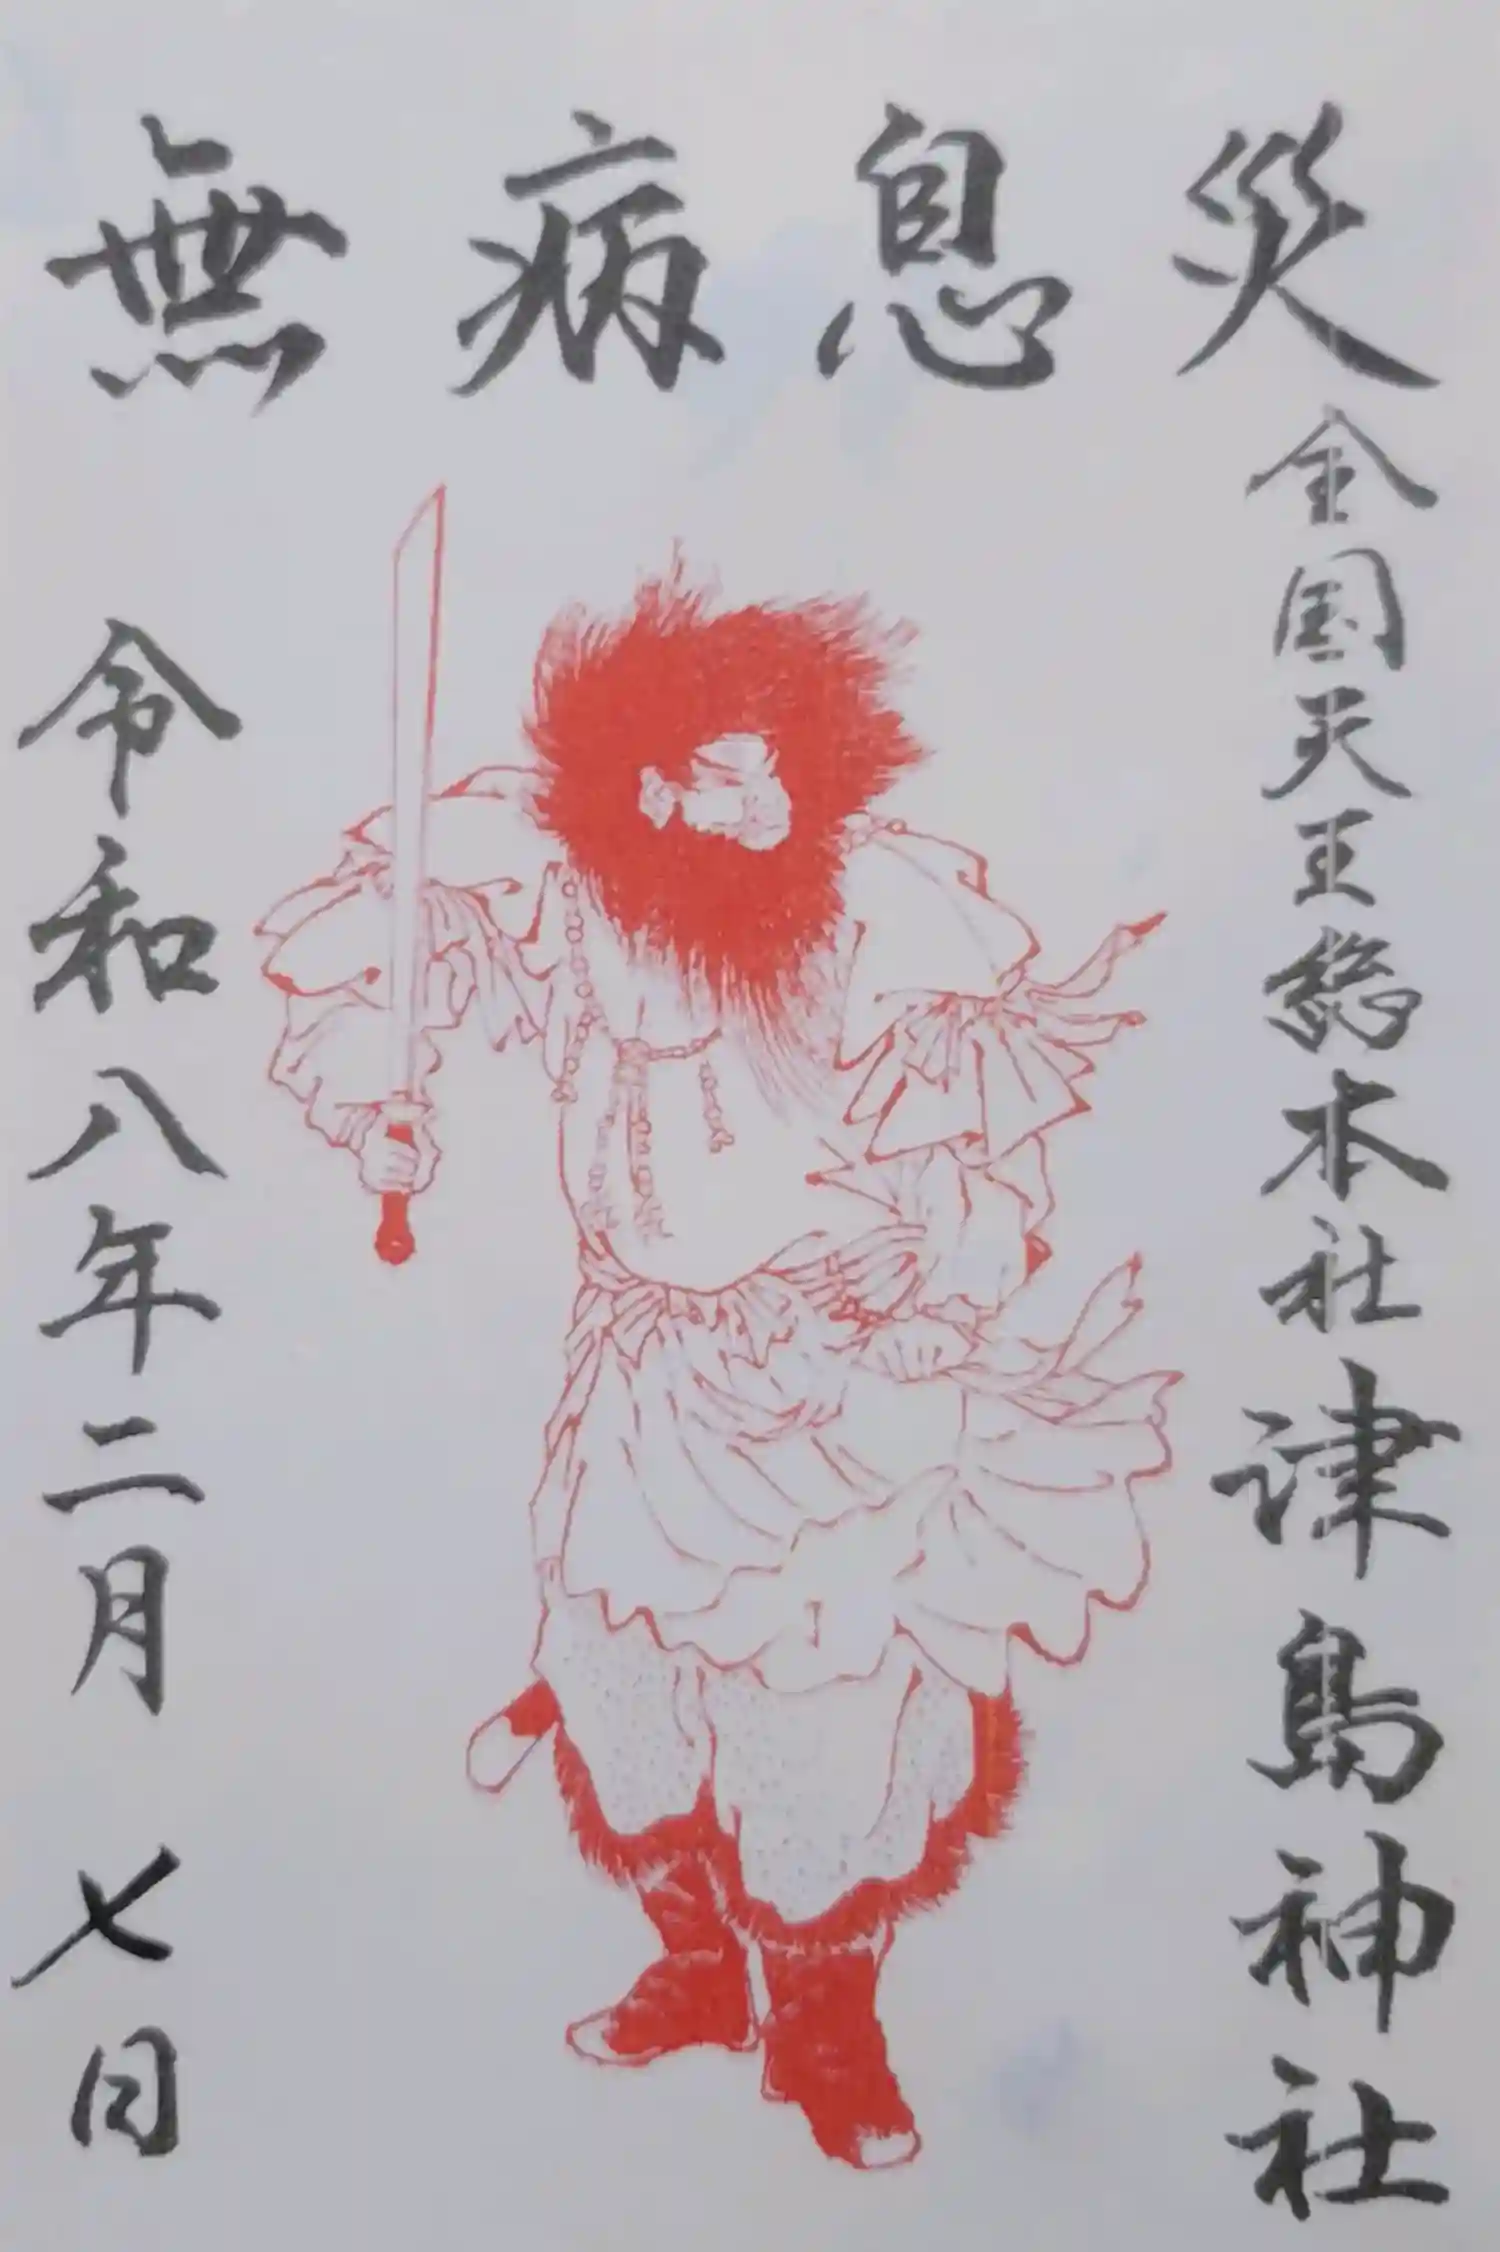 無病息災
全国天王総本社津島神社
令和八年二月七日